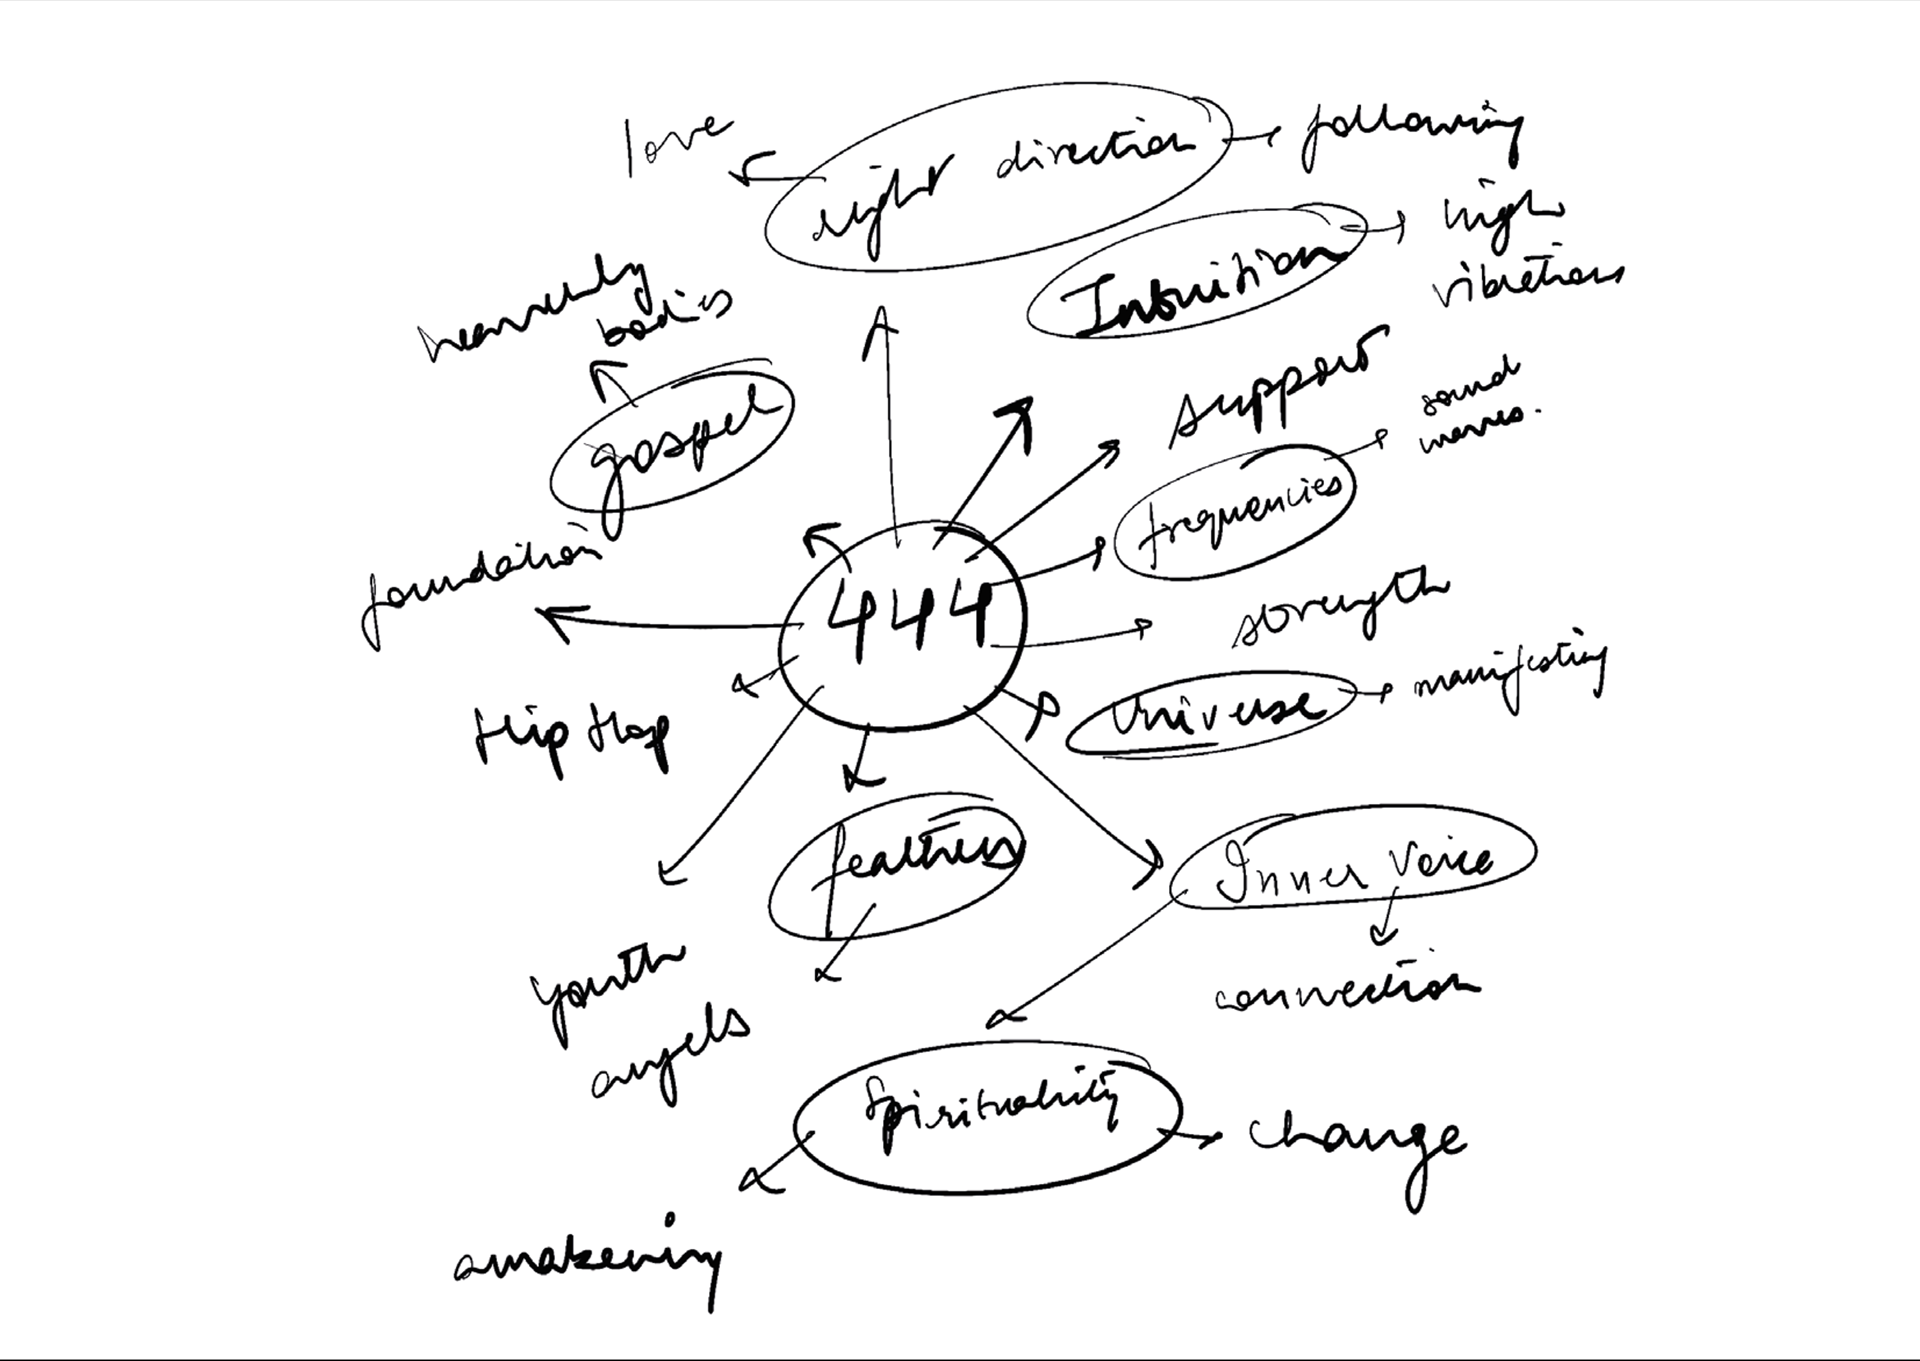 love
right direction
following
Intuition
high
vibrations
heavenly
bodies
gospel
support
sound
waves.
frequencies
foundation
444
strength
Universe
manifesting
Hip Hop
feathers
Inner Voice
youth
connection
angels
Spirituality
change
awakening